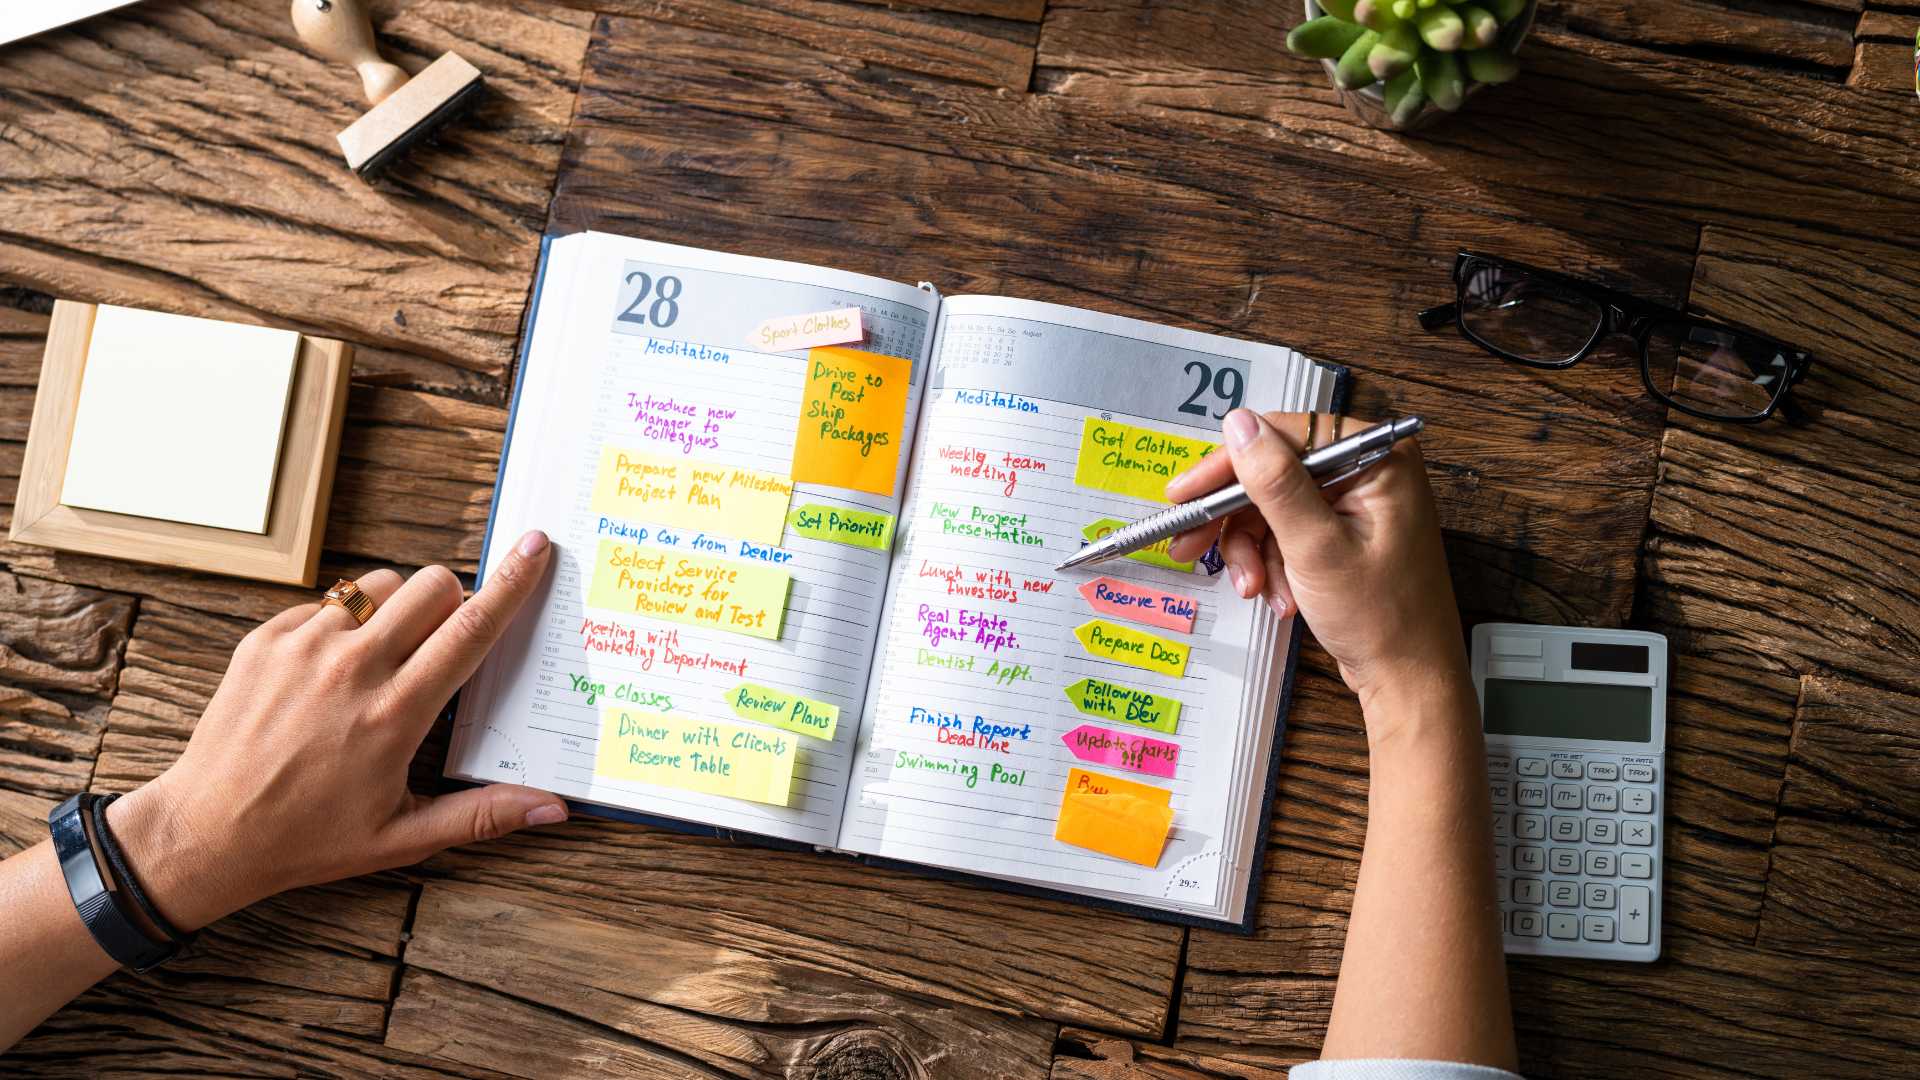 28
Sport Clothes
Meditation
Drive to
Post
Ship
Packages
Introduce new
Manager to
Colleagues
Prepare new Milestone
Project Plan
Set Prioriti
Pickup Car from Dealer
Select Service
Providers for
Review and Test
Meeting with
Marketing Department
Yoga Classes
Review Plans
Dinner with Clients
Reserve Table
28.7.
August
29
Meditation
Get Clothes
Chemical
Weekly team
meeting
New Project
Presentation
Lunch with new
Investors
Reserve Table
Real Estate
Agent Appt.
Prepare Docs
Dentist Appt.
Follow up
with Dev
Finish Report
Deadline
Update Charts
!!!
Swimming Pool
Buy
29.7.
√ % TAX- TAX+
MR M- M+ ÷
7 8 9 ×
4 5 6 −
1 2 3 +
0 . =